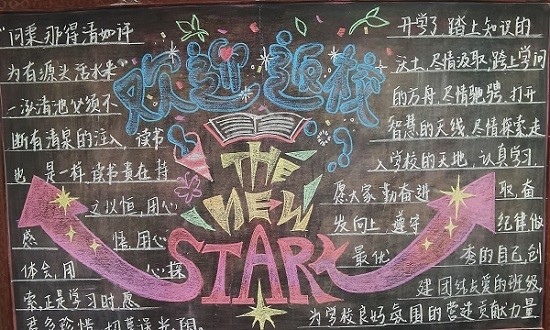 欢迎返校
THE
NEW
START
"问渠那得清如许
为有源头活水来"
一泓清池必须不
断有清泉的注入,读书
也是一样,读书贵在持
之以恒,用心
感悟,用心
体会,用心探
索,正是学习时,愿
君多珍惜,切莫误光阴
开学了,踏上知识的
沃土,尽情汲取,跨上学问
的方舟,尽情驰骋,打开
智慧的天线,尽情探索走
入学校的天地,认真学习,
愿大家勤奋进取,奋
发向上,遵守纪律,做
最优秀的自己,创
建团结友爱的班级,
为学校良好氛围的营造贡献力量